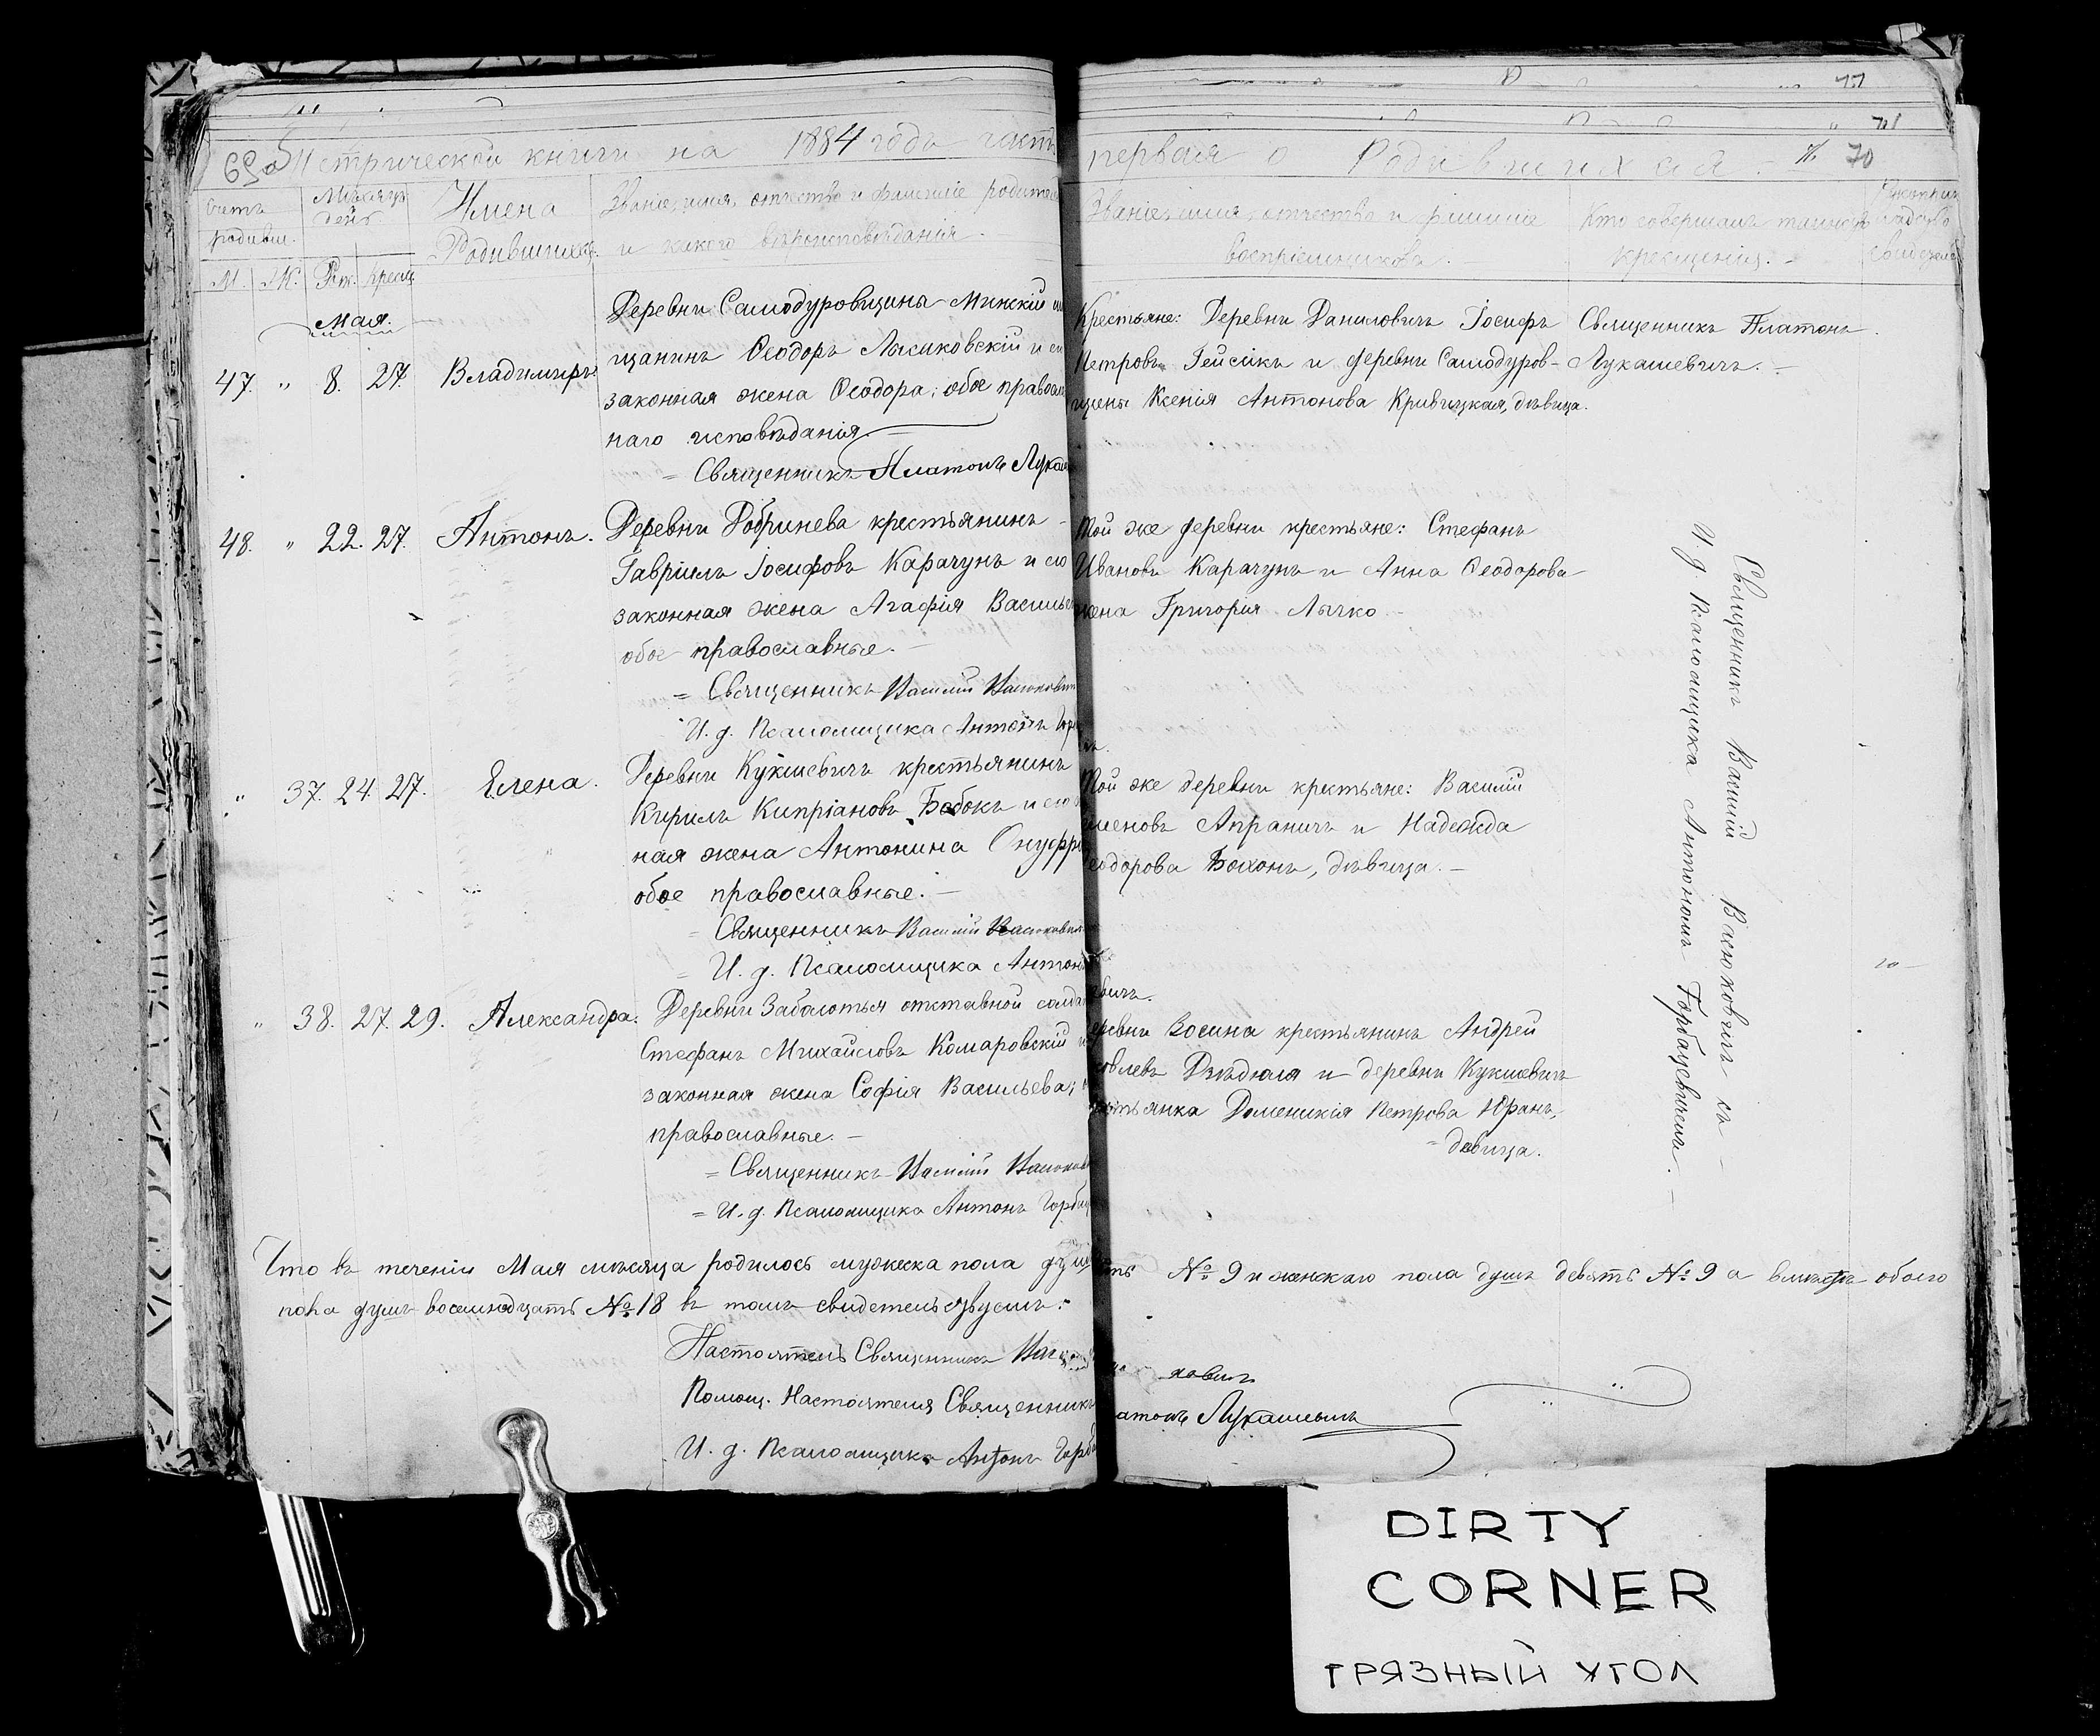 77
71
Метрической книги на 1884 годъ часть первая о Родившихся. 70
Счетъ родивш.
Мѣсяцъ и день
Имена Родившихся.
Званіе, имя, отчество и фамиліе родителей
и какого вѣроисповѣданія.
Званіе, имя, отчество и фамиліе
воспріемниковъ.
Кто совершалъ таинство
крещенія.
М. Ж. Рож. Крещ.
Мая.
47. " 8. 27. Владиміръ
Деревни Самодуровщины Минскій
щанинъ Ѳеодоръ Лысиковскій и
законная жена Ѳеодора; обое православ
наго исповѣданія.
Священникъ Платонъ Лука
Крестьяне: Деревни Даниловичъ Іосифъ
Петровъ Гейсикъ и деревни Самодуров-
щины Ксенія Антонова Кривицкая, дѣвица.
Священникъ Платонъ
Лукашевичъ.
48. " 22. 27. Антонъ.
Деревни Добринева крестьянинъ
Гавріилъ Іосифовъ Карачунъ и его
законная жена Агафія Василье
обое православные.
Священникъ Василій Васюкович
И. д. Псаломщика Антонъ Горб
Той же деревни крестьяне: Стефанъ
Ивановъ Карачунъ и Анна Ѳеодорова
жена Григорія Лычко
" 37. 24. 27. Елена.
Деревни Кукшевичъ крестьянинъ
Кирилъ Кипріановъ Бобокъ и его
ная жена Антонина Онуфрі
обое православные.
Священникъ Василій Васюкович
И. д. Псаломщика Антонъ
Той же деревни крестьяне: Василій
меновъ Апраничъ и Надежда
еодорова Бохонъ, дѣвица.
" 38. 27. 29. Александра.
Деревни Заболотья отставной солда
Стефанъ Михайловъ Комаровскій и
законная жена Софія Васильева;
православные.
Священникъ Василій Васюков
И. д. Псаломщика Антонъ Горба
евичъ.
еревни Восина крестьянинъ Андрей
ковлевъ Дзѣдюля и деревни Кукшевичъ
естьянка Доменикія Петрова Юранъ,
дѣвица.
Священникъ Василій Васюковичъ съ
И. д. Псаломщика Антономъ Горбацевичемъ.
Что въ теченіи Мая мѣсяца родилось мужеска пола душъ девять № 9 и женскаго пола душъ девять № 9 а вмѣстѣ обоего
пола душъ восемнадцать № 18 въ томъ свидетельствуемъ:
Настоятель Священникъ Вас ковичъ
Помощ. Настоятеля Священникъ атонъ Лукашевичъ
И. д. Псаломщика Антонъ Горба
DIRTY
CORNER
ГРЯЗНЫЙ УГОЛ